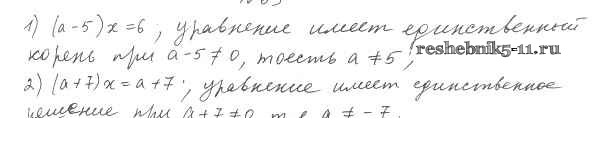 1) (a-5)x=6; уравнение имеет единственный
корень при a-5≠0, тоесть a≠5;
reshebnik5-11.ru
2) (a+7)x=a+7; уравнение имеет единственное
решение при a+7≠0, т.е. a≠-7.